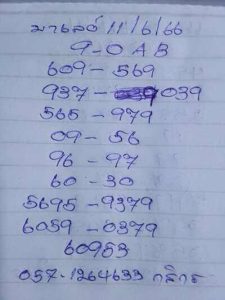 มาเลย์ 11/6/66
9-0 A B
609-569
937-039
565-979
09-56
96-97
60-30
5695-9379
6039-0379
60953
057-1264633 กสิกร